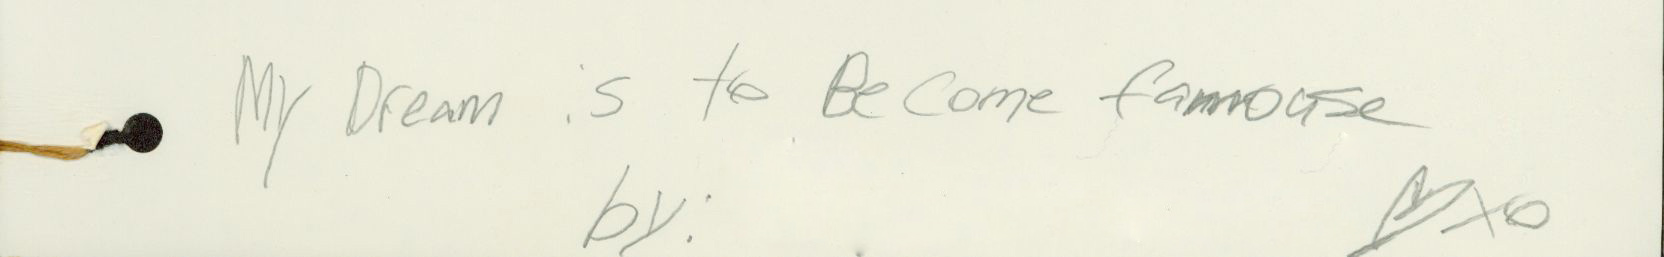 My Dream is to Become famouse
by: ♡xo